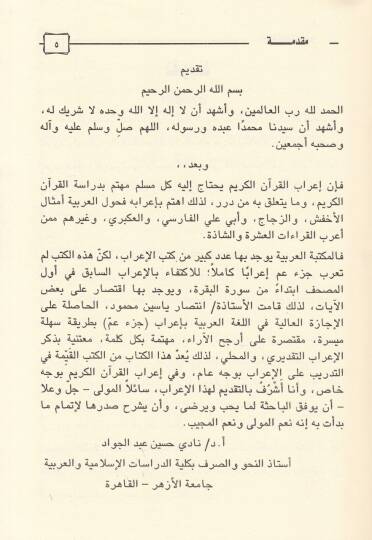 مقدمـــة
٥
تقديم
بسم الله الرحمن الرحيم
الحمد لله رب العالمين، وأشهد أن لا إله إلا الله وحده لا شريك له،
وأشهد أن سيدنا محمدًا عبده ورسوله، اللهم صلِّ وسلم عليه وآله
وصحبه أجمعين.
وبعد،،
فإن إعراب القرآن الكريم يحتاج إليه كل مسلم مهتم بدراسة القرآن
الكريم، وما يتعلق به من درر، لذلك اهتم بإعرابه فحول العربية أمثال
الأخفش، والزجاج، وأبي علي الفارسي، والعكبري، وغيرهم ممن
أعرب القراءات العشرة والشاذة.
فالمكتبة العربية يوجد بها عدد كبير من كتب الإعراب، لكنّ هذه الكتب لم
تعرب جزء عم إعرابًا كاملاً؛ للاكتفاء بالإعراب السابق في أول
المصحف ابتداءً من سورة البقرة، ويوجد بها اقتصار على بعض
الآيات، لذلك قامت الأستاذة/ انتصار ياسين محمود، الحاصلة على
الإجازة العالية في اللغة العربية بإعراب (جزء عمّ) بطريقة سهلة
ميسرة، مقتصرة على أرجح الآراء، مهتمة بكل كلمة، معتنية بذكر
الإعراب التقديري، والمحلي، لذلك يُعدّ هذا الكتاب من الكتب القيّمة في
التدريب على الإعراب بوجه عام، وفي إعراب القرآن الكريم بوجه
خاص، وأنا أشْرُفُ بالتقديم لهذا الإعراب، سائلاً المولى – جلّ وعلا
– أن يوفق الباحثة لما يحب ويرضى، وأن يشرح صدرها لإتمام ما
بدأت به إنه نعم المولى ونعم المجيب.
أ.د/ نادي حسين عبد الجواد
أستاذ النحو والصرف بكلية الدراسات الإسلامية والعربية
جامعة الأزهر – القاهرة